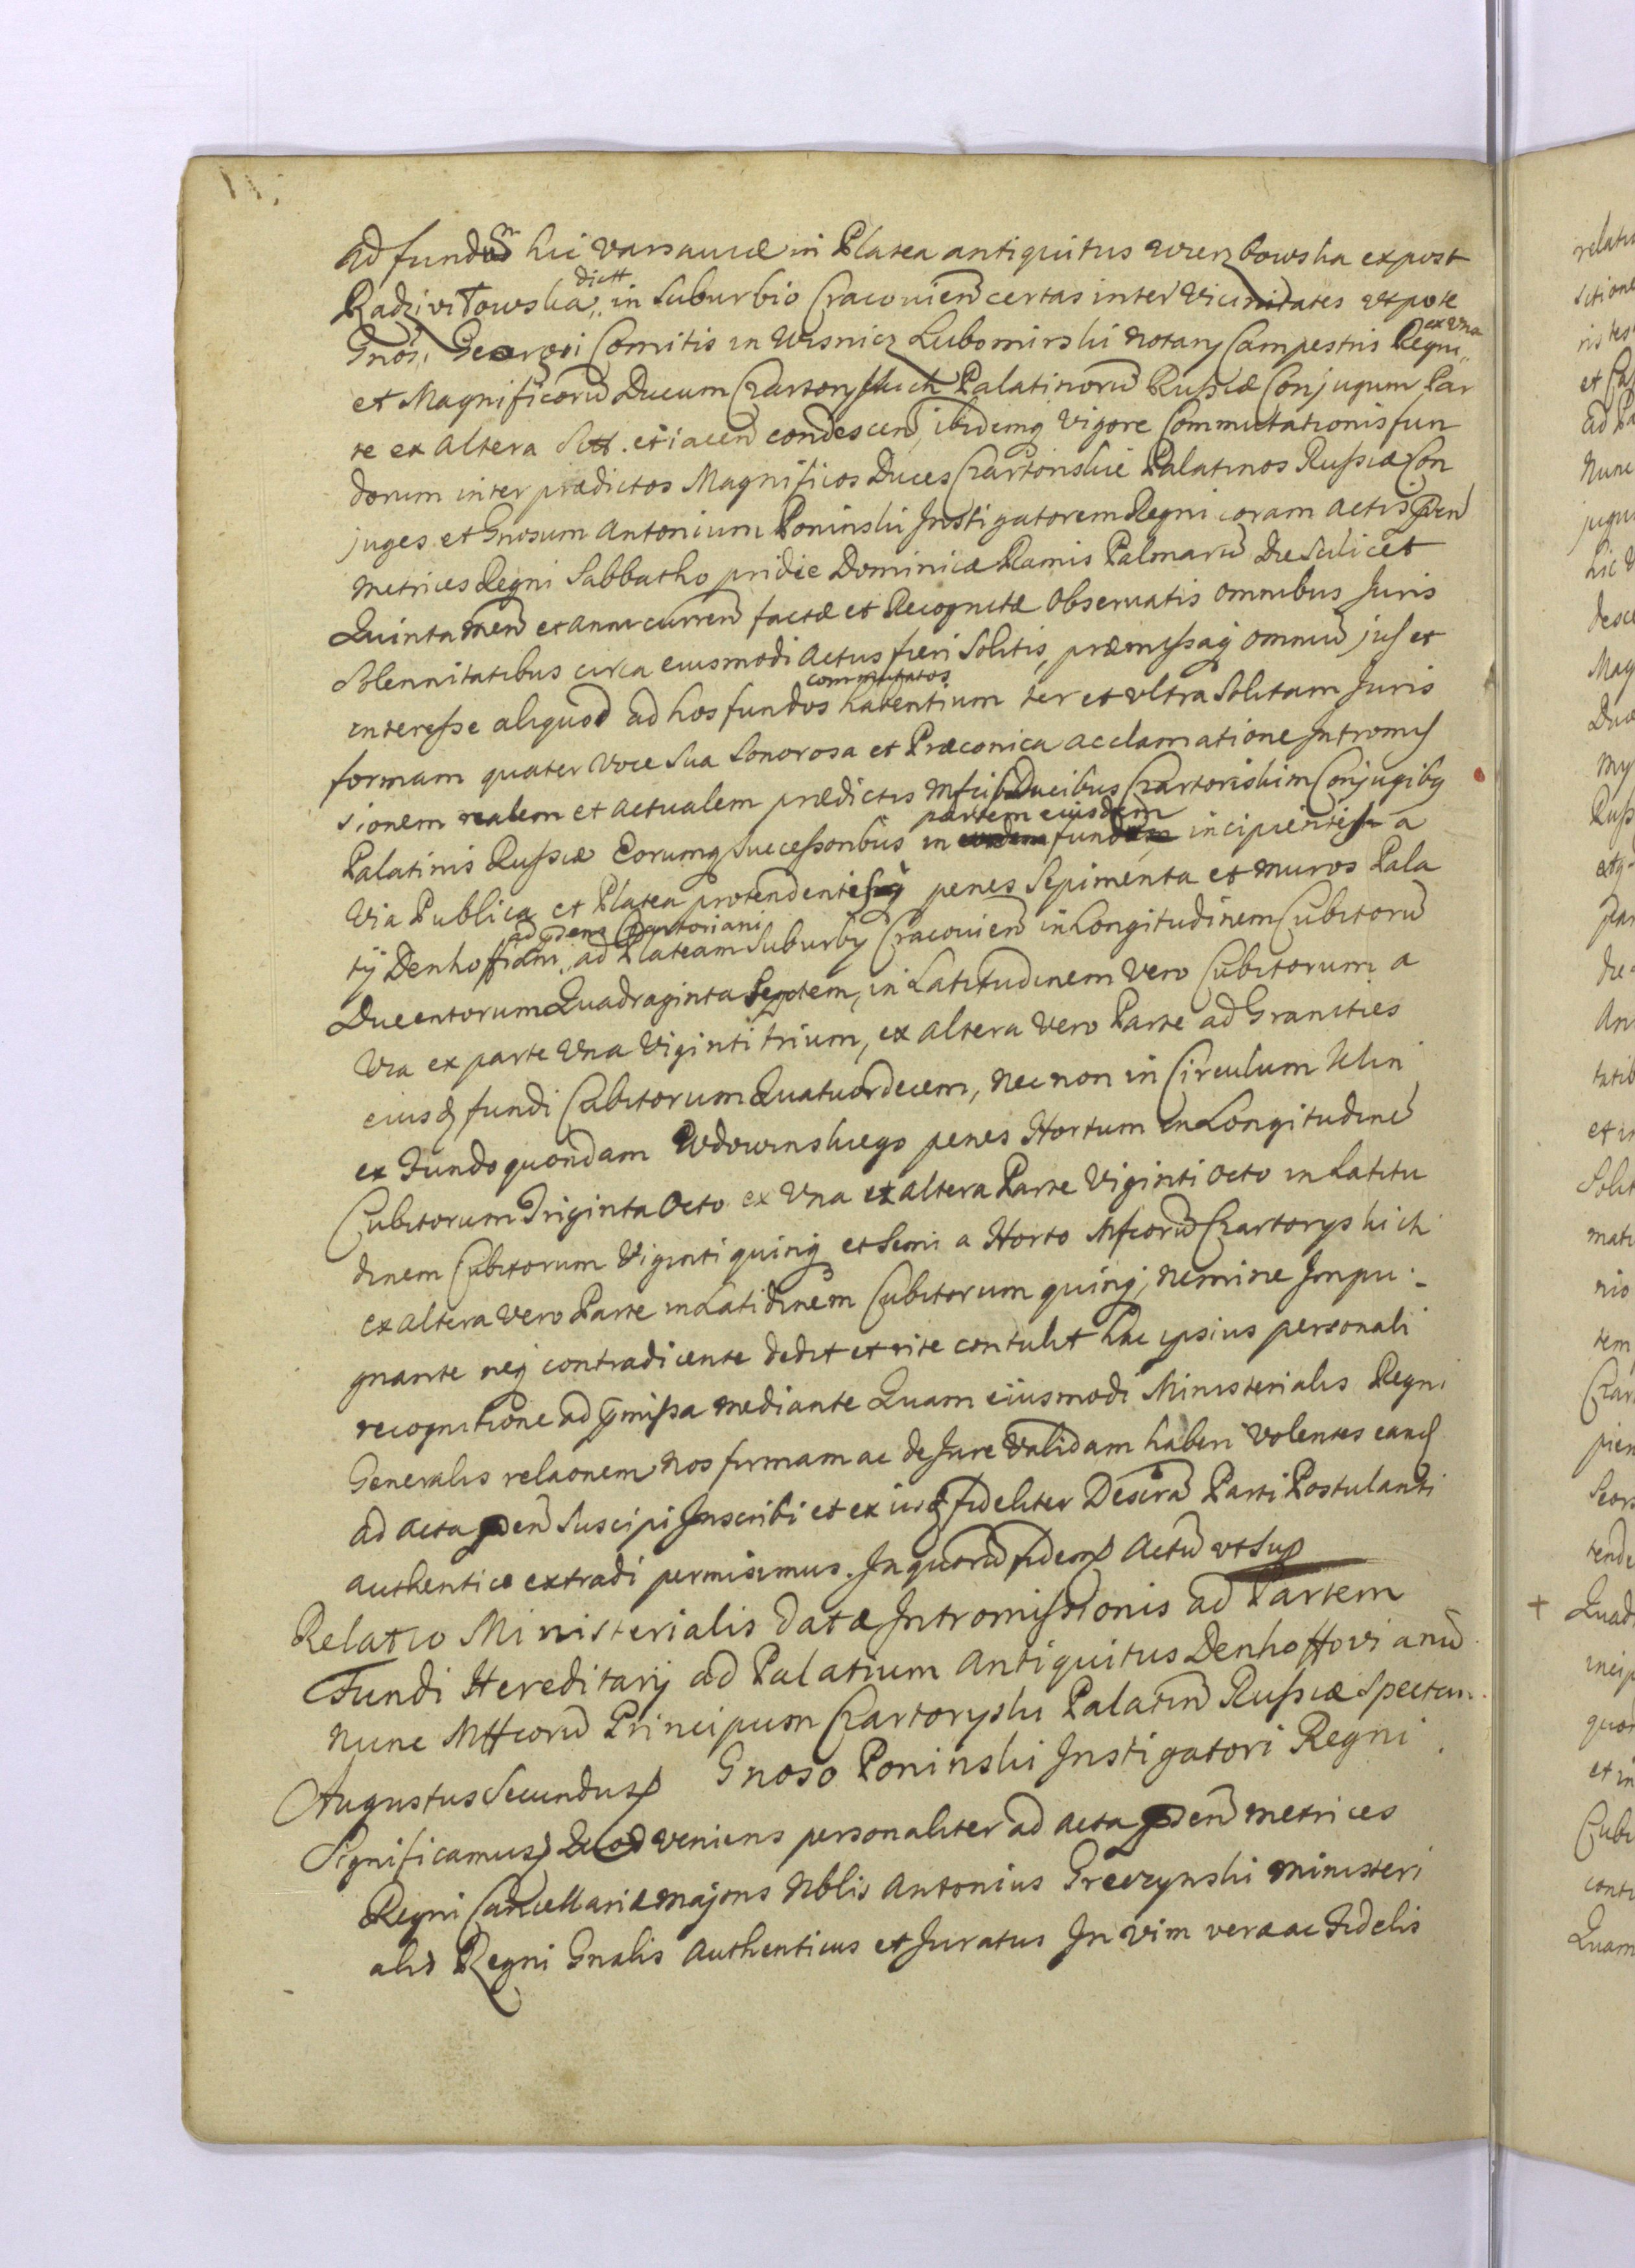 11.
ad fundum hic Varsaviæ in Platea antiquitus Wierzbowska ex post
Radziwiłowska dictt in Suburbio Cracovien certas inter Vicinitates utpote
Gnosi Georgii Comitis in Wisnicz Lubomirski Notarij Campestris Regni ex una
et Magnificorū Ducum Czartoryskich Palatinorū Russiæ Conjugum Par
te ex altera sitt. et iacen condescen, ibidemq Vigore Commutationis fun
dorum inter prædictos Magnificos Duces Czartoriskie Palatinos Russiæ Con
juges et Gnosum Antonium Poninski Instigatorem Regni coram Actis pñ
Metrices Regni Sabbatho pridie Dominicæ Ramis Palmarū Die Scilicet
Quinta men et anni curren factæ et Recognitæ observatis omnibus Juris
Solennitatibus circa eiusmodi actus fieri Solitis, præmissaq omniū jus et
interesse aliquod ad hos fundos commutatos habentium ter et ultra Solitam Juris
formam quater voce sua Sonorosa et Præconica acclamatione Intromis
sionem realem et actualem prædictis Mfcis Ducibus Czartoriskim Conjugibq
Palatinis Russiæ Eorumq Successoribus in partem eiusdem fundi incipientis a
Via Publica et Platea protendentisq penes Sepimenta et muros Pala
tij Denhoffiani ad Plateam Suburbij Cracovien in Longitudinem Cubitorū
Ducentorum Quadraginta Septem, in Latitudinem vero Cubitorum a
Via ex parte Una Viginti trium, ex altera vero Parte ad Granities
eiusd fundi Cubitorum Quatuordecem, nec non in Circulum
ex Fundo quondam Wdowinskiego penes Hortum in Longitudinē
Cubitorum Triginta Octo ex Una et altera Parte Viginti octo in Latitu
dinem Cubitorum Viginti quinq et Semi a Horto Mfcorū Czartoryskich
ex altera vero Parte in Latidinem Cubitorum quinq; nemine Impu-
gnante neq contradicente dedit et rite contulit hac ipsius personali
recognitione ad pmissa mediante Quam eiusmodi Ministerialis Regni
Generalis relaonem nos firmam ac de Jure Validam haberi volentes eand
ad acta pñ Suscipi Inscribi et ex iisd fideliter Descra Parti Postulanti
authentice extradi permisimus. In quorū fidem Actū ut Sup
Relatio Ministerialis datæ Intromissionis ad Partem
Fundi Hereditarij ad Palatium Antiquitus Denhoffovianū
nunc Mffcorū Principum Czartoryski Palatin Russiæ Spectan.
Gnoso Poninski Instigatori Regni
Augustus Secundus
Significamus Quod veniens personaliter ad acta pñ metrices
Regni Cancellariæ majoris Nblis Antonius Grevzynski ministeri
alis Regni Gnalis Authenticus et Juratus In vim veræ ac Fidelis